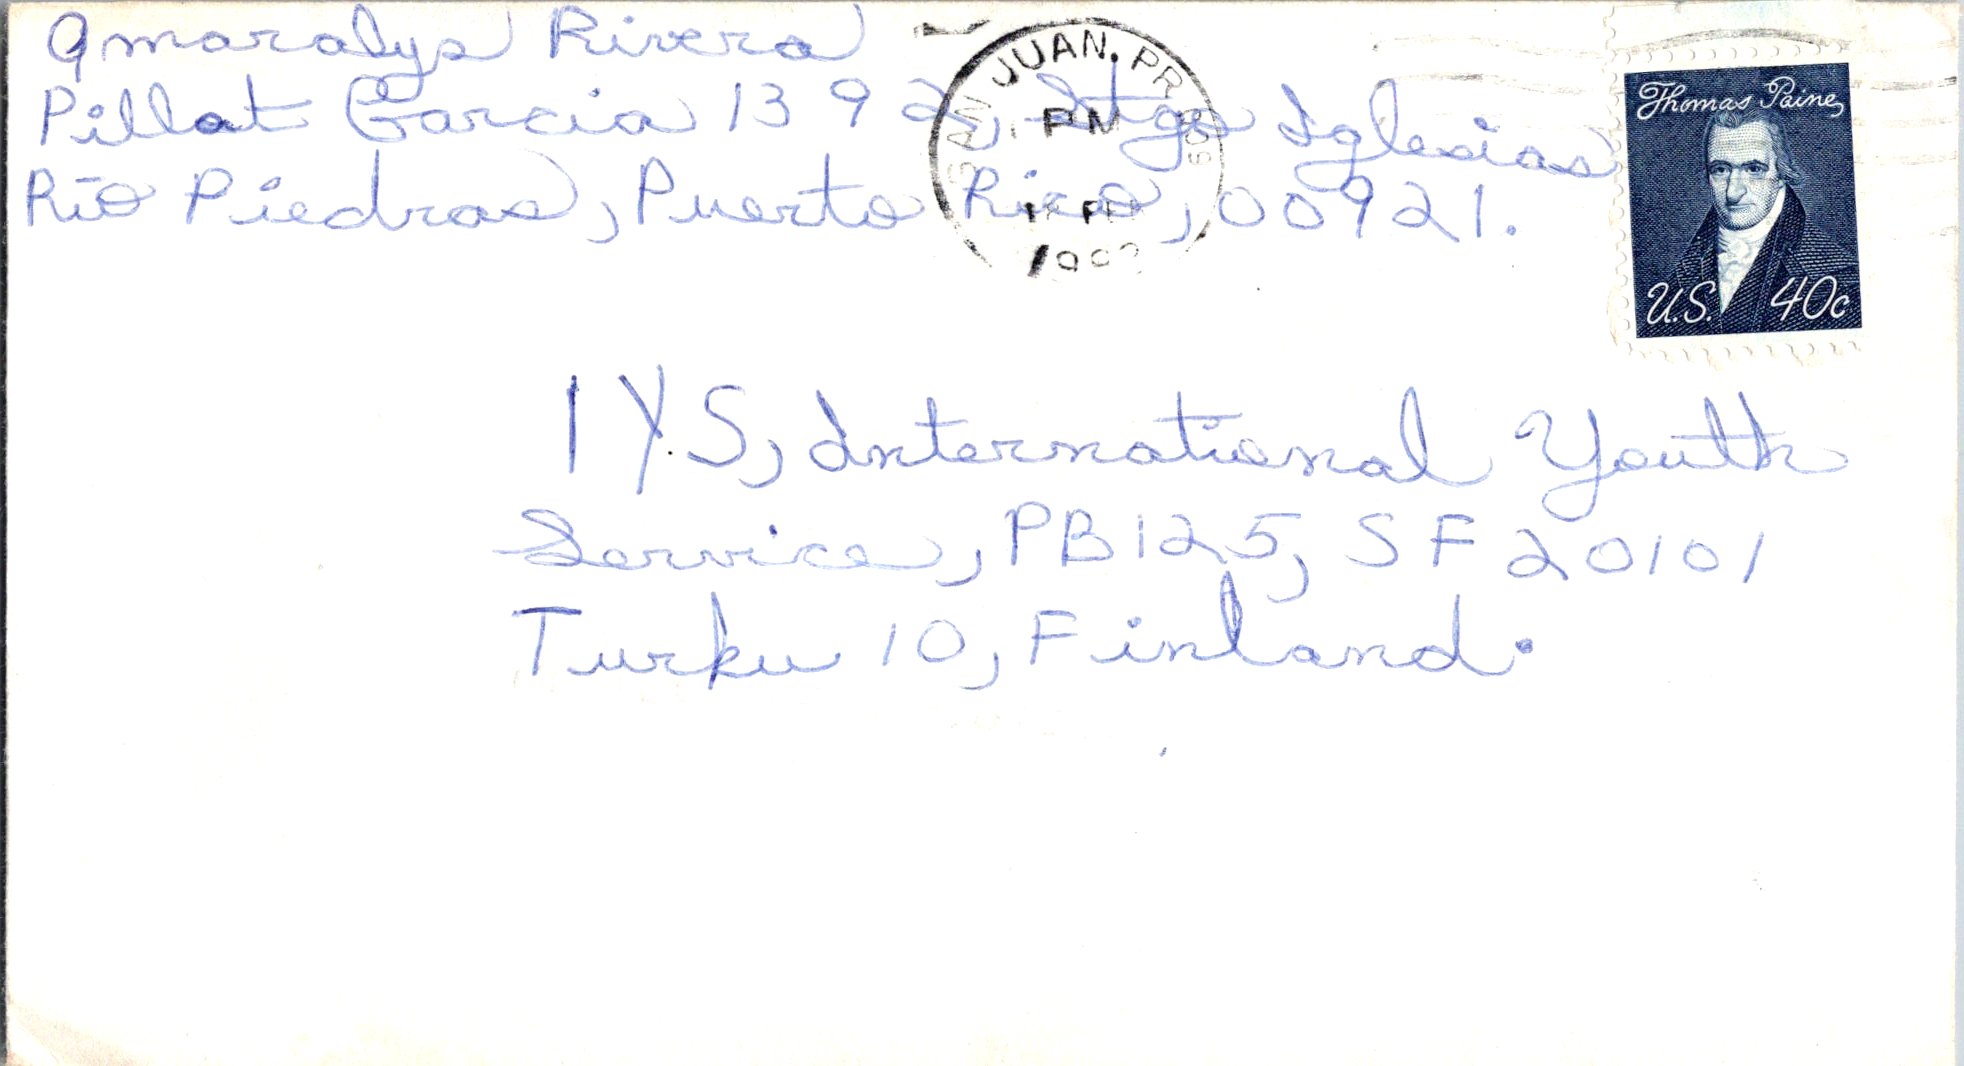 Amaralys Rivera
Pillat Garcia 1392, Stgo Iglesias
Río Piedras, Puerto Rico, 00921.
SAN JUAN, PR 009
PM
1992
Thomas Paine
U.S. 40c
I Y.S, International Youth
Service, PB 125, SF 20101
Turku 10, Finland.